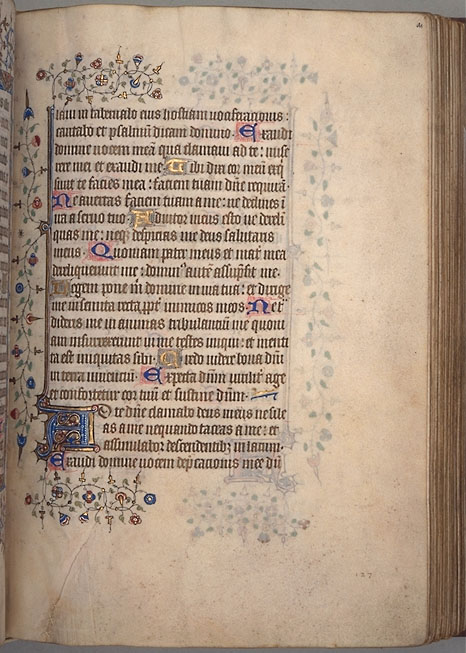 laui in tabernaclo eius hostiam uociferacionis :
cantabo et psalmum dicam domino. Exaudi
domine uocem meā qua clamaui ad te : mise
rere mei et exaudi me Tibi dix cor meū exq
siuit te facies mea : faciem tuam dn̄e requirā.
Ne auertas faciem tuam a me : ne declines ī
ira a seruo tuo Adiutor meus esto ne derelī
quas me : neq; despicias me deus salutaris
meus. Quoniam pater meus et mat͛ mea
dereliquerunt me : domin᷒ autē assūpsit me.
Legem pone m̄ domine in uia tua : et dirige
me in semita recta ꝓpt͛ inimicos meos. Ne t͛
dideris me in animas tribulantiū me quoni
am insurrexerunt in me testes iniqui : et menti
ta est iniquitas sibi. Credo uidere bona dn̄i
in terra uiuenciū. Expecta dn̄m uirilit͛ age
et confortetur cor tuū et sustine dn̄m.
Ad te dn̄e clamabo deus meus ne sile
as a me nequando taceas a me : et
assimilabor descendentib; in lacum.
Exaudi domine uocem dep̄cacionis mee dū
137